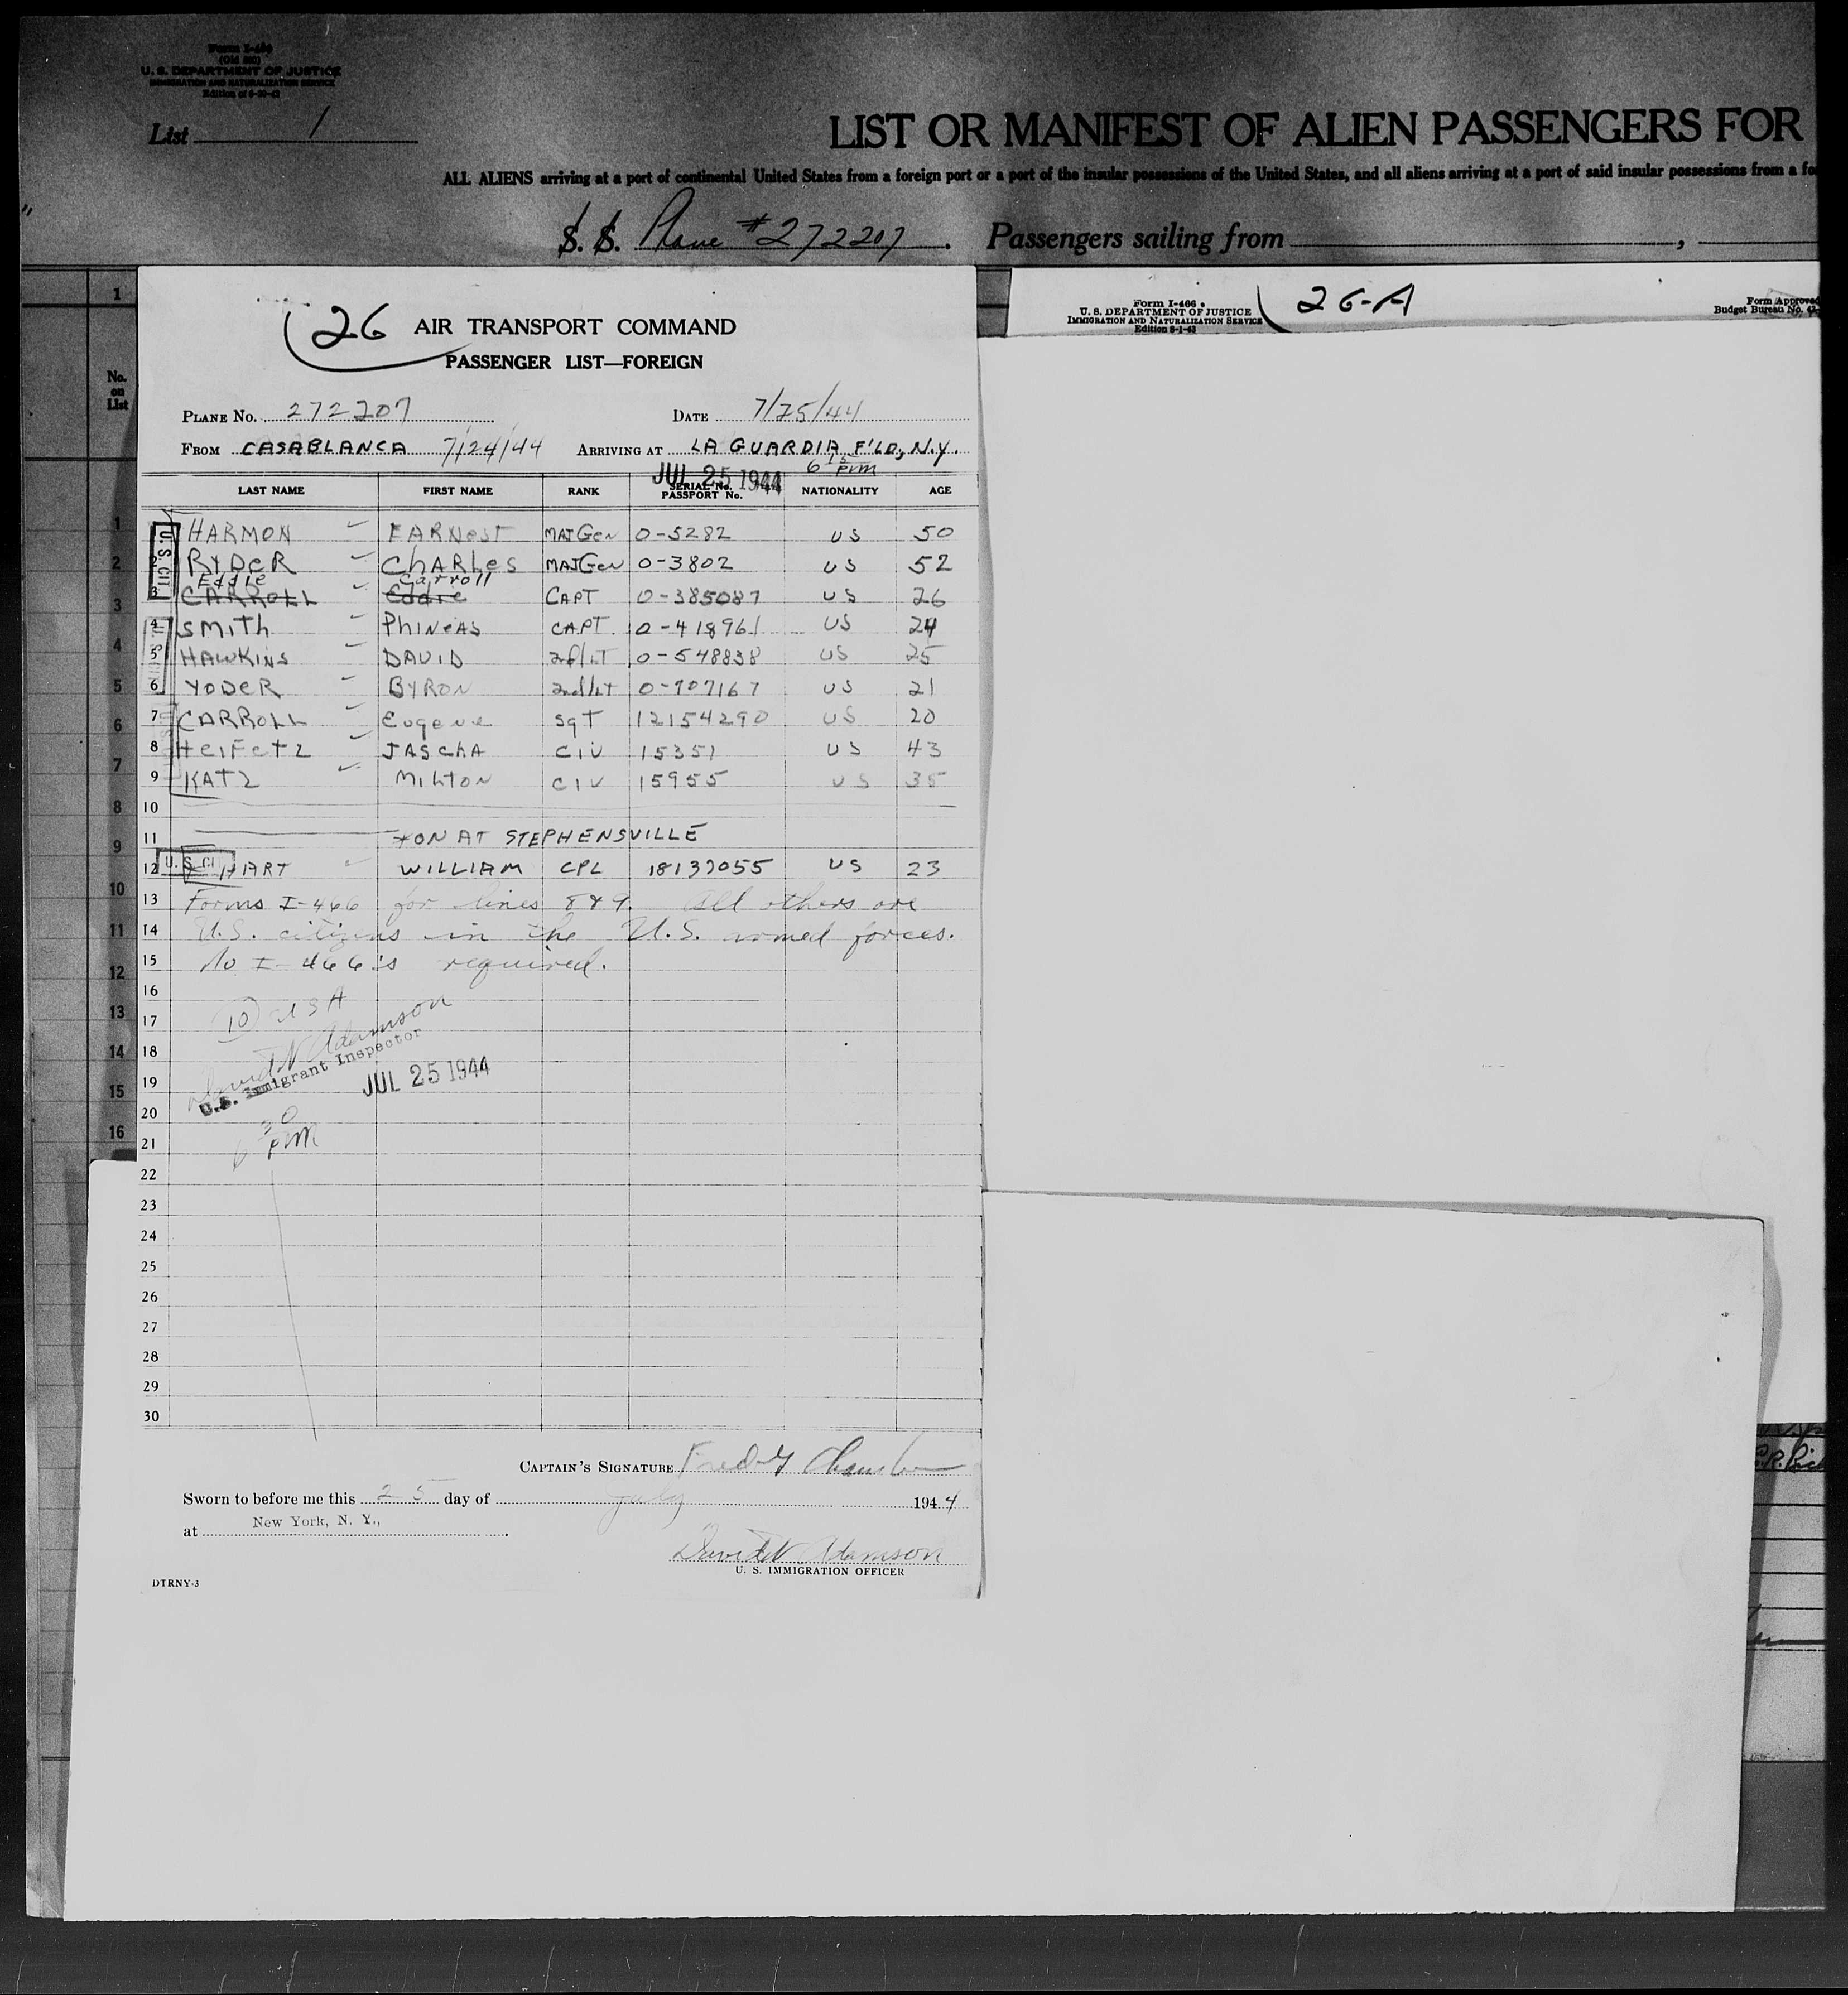 Form I-466
(Old 500)
U. S. DEPARTMENT OF JUSTICE
IMMIGRATION AND NATURALIZATION SERVICE
List 1
LIST OR MANIFEST OF ALIEN PASSENGERS FOR
ALL ALIENS arriving at a port of continental United States from a foreign port or a port of the insular possessions of the United States, and all aliens arriving at a port of said insular possessions from a fo
S. S. Plane #272207. Passengers sailing from ,
Form I-466
U. S. DEPARTMENT OF JUSTICE
IMMIGRATION AND NATURALIZATION SERVICE
Edition 8-1-43
26-A
Form Approved
Budget Bureau No. 43
No. on List
1
2
3
4
5
6
7
8
9
10
11
12
13
14
15
16
26 AIR TRANSPORT COMMAND
PASSENGER LIST—FOREIGN
PLANE No. 272207 DATE 7/25/44
FROM CASABLANCA 7/24/44 ARRIVING AT LA GUARDIA F'LD, N.Y.
JUL 25 1944 6 15 PM
LAST NAME FIRST NAME RANK SERIAL No. PASSPORT No. NATIONALITY AGE
U. S. CIT
1 HARMON EARNEST MAJ GEN 0-5282 US 50
2 RYDER CHARLES MAJ GEN 0-3802 US 52
Eddie Carroll
3 CARROLL Eddie CAPT 0-385087 US 26
4 SMITH PHINEAS CAPT. 0-418961 US 24
5 HAWKINS DAVID 2nd/LT 0-548838 US 25
6 YODER BYRON 2nd/LT 0-707167 US 21
7 CARROLL Eugene SGT 12154290 US 20
8 HEIFETZ JASCHA CIV 15351 US 43
9 KATZ MILTON CIV 15955 US 35
10
11 ON AT STEPHENSVILLE
12 U. S. CI HART WILLIAM CPL 18137055 US 23
13 Forms I-466 for lines 8 & 9. All others are
14 U.S. citizens in the U.S. armed forces.
15 No I-466's required.
16
17 10 USA
18 David N Adamson
19 U.S. Immigrant Inspector JUL 25 1944
20
21 6 30 PM
22
23
24
25
26
27
28
29
30
CAPTAIN'S SIGNATURE
Sworn to before me this 25 day of July 1944
at New York, N. Y.,
David N Adamson
U. S. IMMIGRATION OFFICER
DTRNY-3